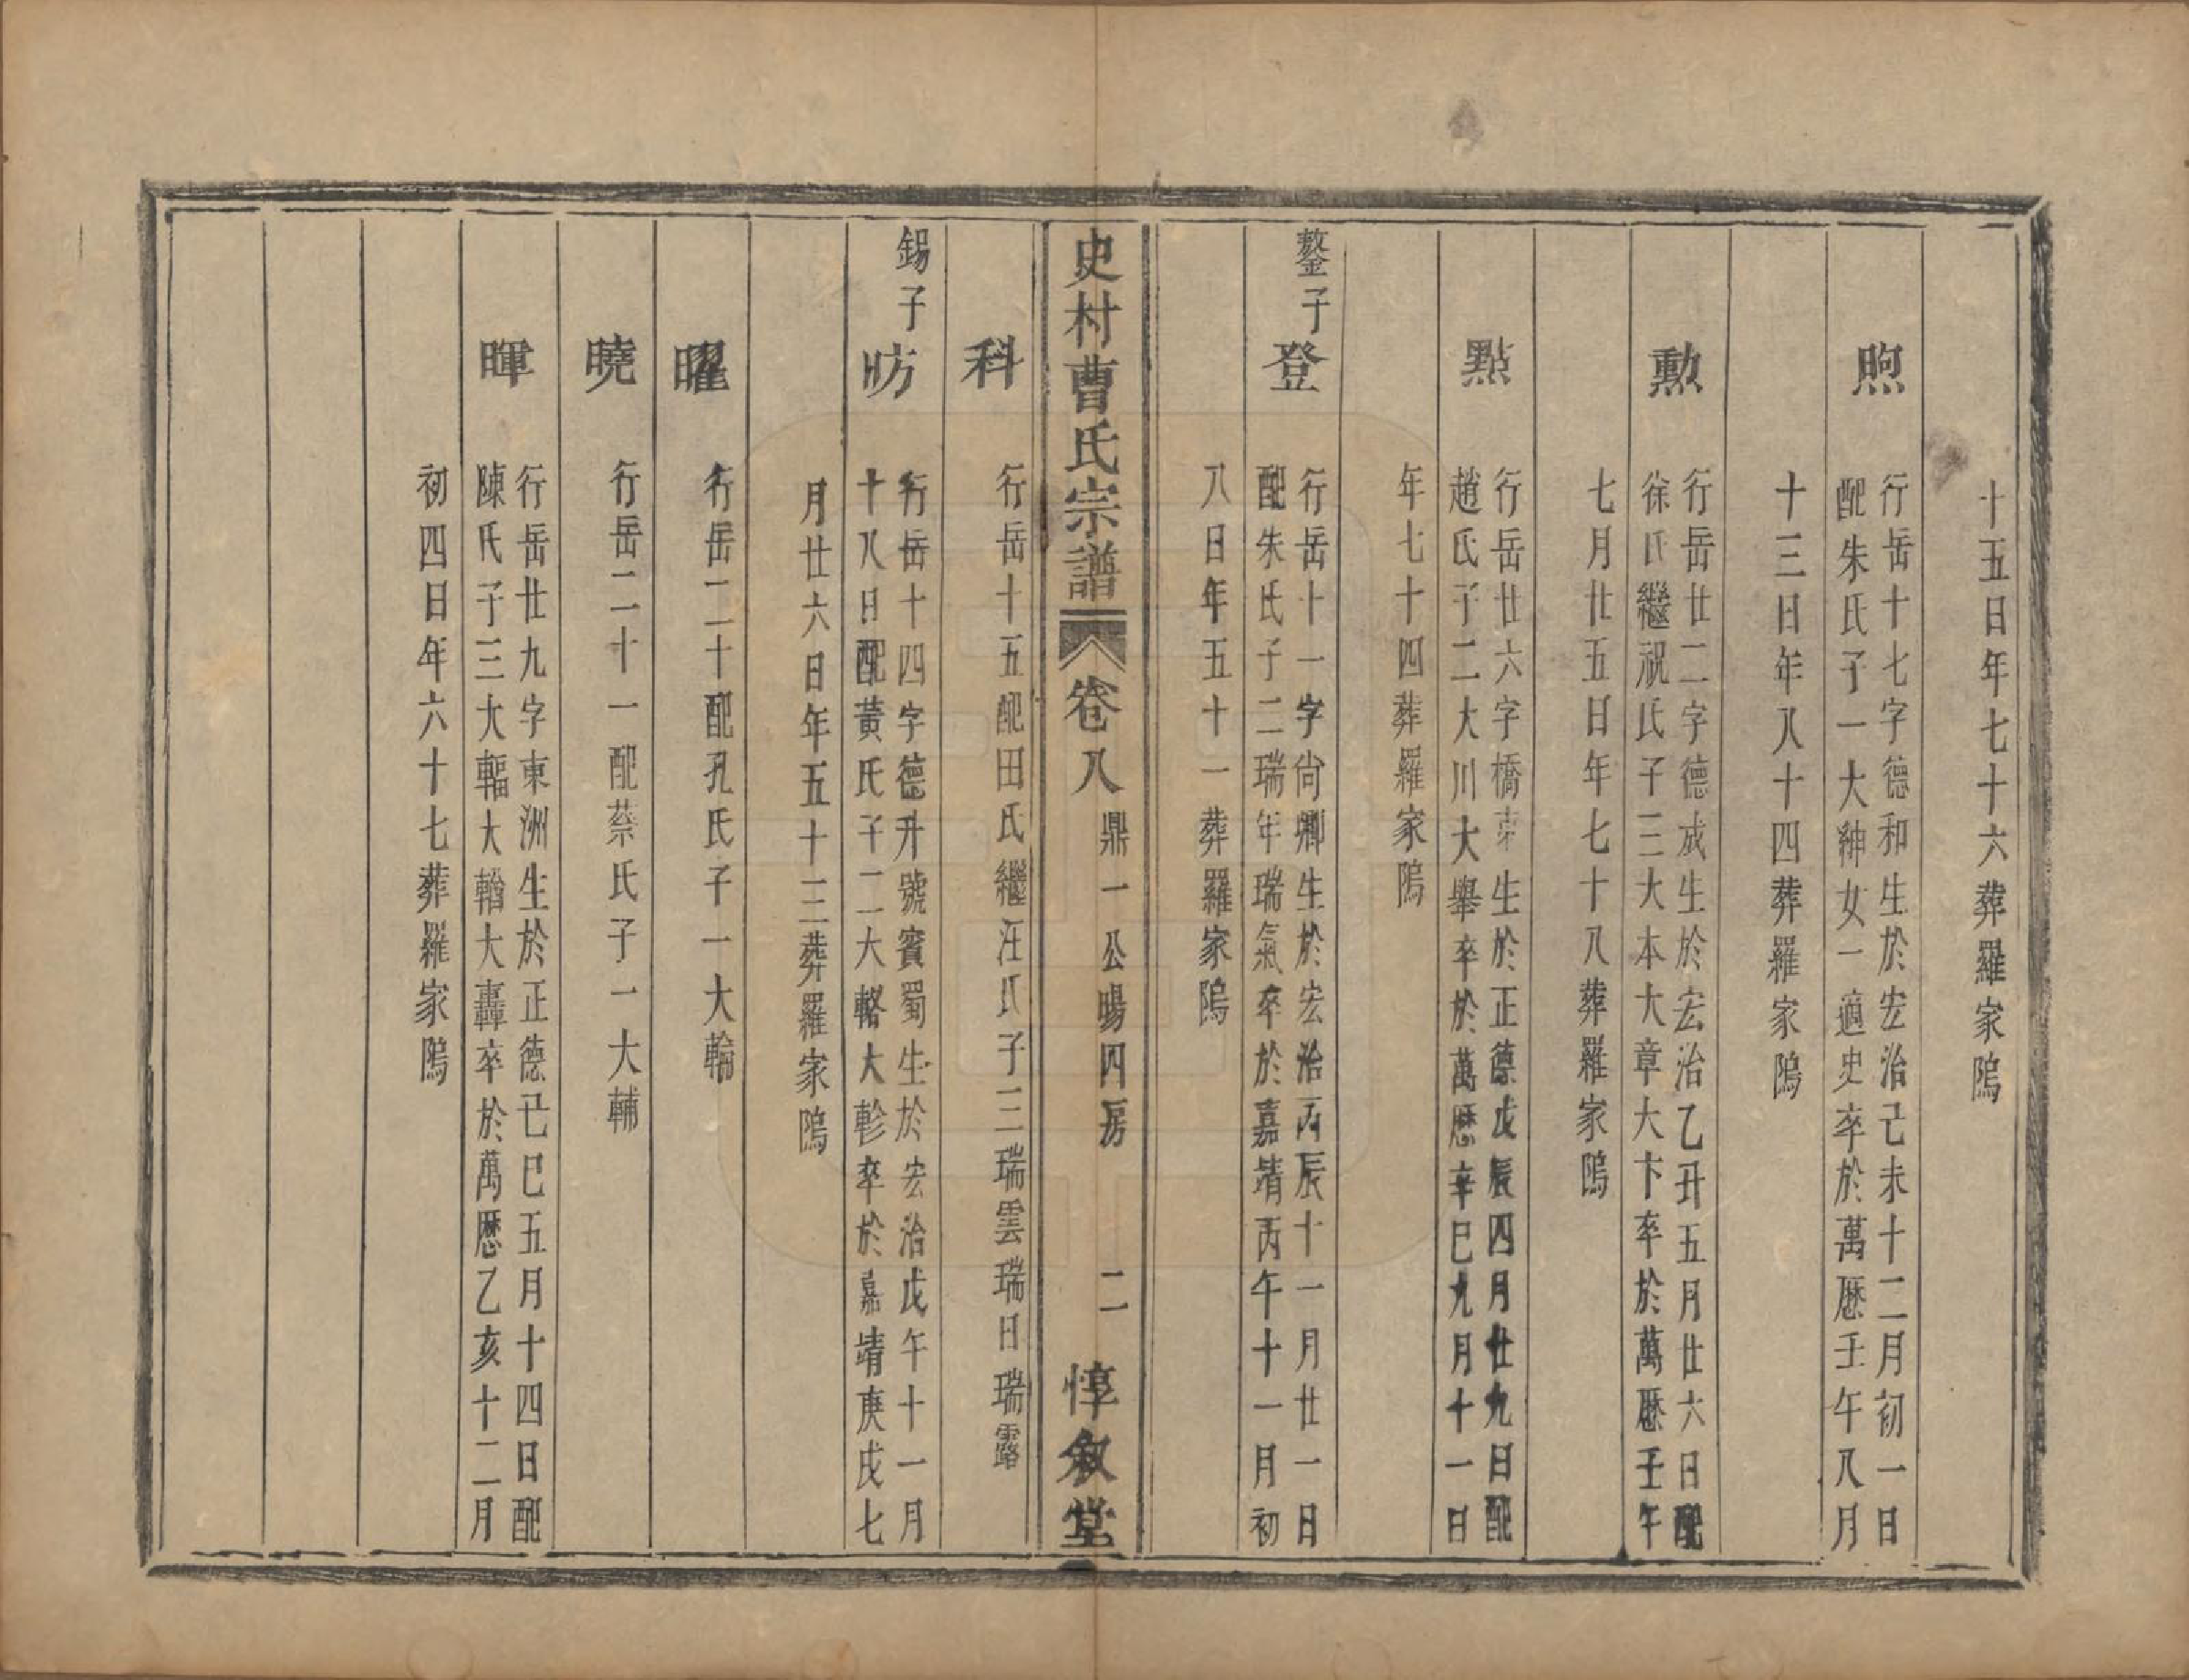 十五日年七十六葬羅家隖
煦
行岳十七字德和生於宏治己未十二月初一日
配朱氏子一大紳女一適史卒於萬厯壬午八月
十三日年八十四葬羅家隖
勲
行岳廿二字德成生於宏治乙丑五月廿六日配
徐氏繼祝氏子三大本大章大卞卒於萬厯壬午
七月廿五日年七十八葬羅家隖
點
行岳廿六字橋東生於正德戊辰四月廿九日配
趙氏子二大川大舉卒於萬厯辛巳九月十一日
年七十四葬羅家隖
鏊子
登
行岳十一字尙卿生於宏治丙辰十一月廿一日
配朱氏子二瑞年瑞氣卒於嘉靖丙午十一月初
八日年五十一葬羅家隖
史村曹氏宗譜 卷八 鼎一公暘四房 二 惇敘堂
科
行岳十五配田氏繼汪氏子三瑞雲瑞日瑞露
錫子
昉
行岳十四字德升號賓蜀生於宏治戊午十一月
十八日配黃氏子二大輅大軫卒於嘉靖庚戌七
月廿六日年五十三葬羅家隖
曜
行岳二十配孔氏子一大輪
曉
行岳二十一配蔡氏子一大輔
暉
行岳廿九字東洲生於正德己巳五月十四日配
陳氏子三大輻大輶大轟卒於萬厯乙亥十二月
初四日年六十七葬羅家隖